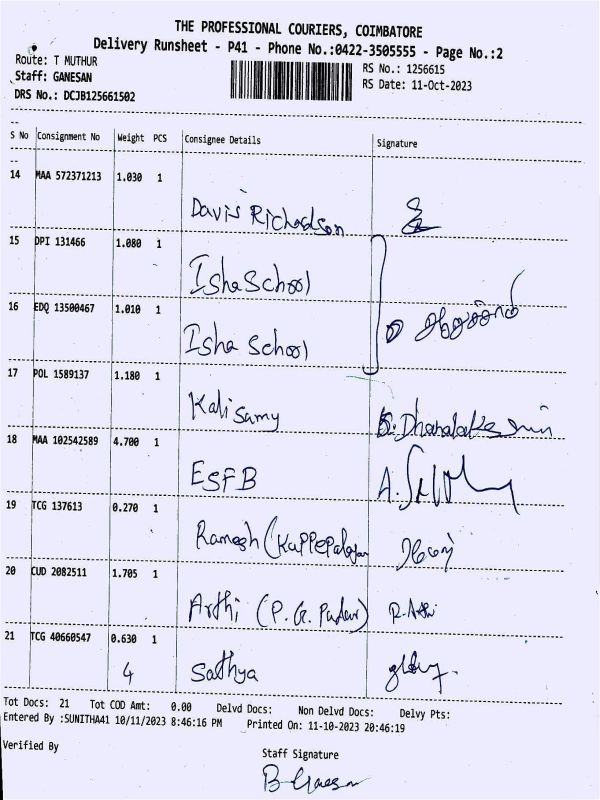 THE PROFESSIONAL COURIERS, COIMBATORE
Delivery Runsheet - P41 - Phone No.:0422-3505555 - Page No.:2
Route: T MUTHUR
RS No.: 1256615
Staff: GANESAN
RS Date: 11-Oct-2023
DRS No.: DCJB125661502
S No Consignment No Weight PCS Consignee Details Signature
14 MAA 572371213 1.030 1
Davis Richardson
15 DPI 131466 1.080 1
Isha School
16 EDQ 13500467 1.010 1
Isha School
17 POL 1589137 1.180 1
Kalisamy
18 MAA 102542589 4.700 1
ESFB
19 TCG 137613 0.270 1
Ramesh
20 CUD 2082511 1.705 1
Arthi (P. G. Pudur) R. Arthi
21 TCG 40660547 0.630 1
4 Sathya
Tot Docs: 21 Tot COD Amt: 0.00 Delvd Docs: Non Delvd Docs: Delvy Pts:
Entered By :SUNITHA41 10/11/2023 8:46:16 PM Printed On: 11-10-2023 20:46:19
Verified By
Staff Signature